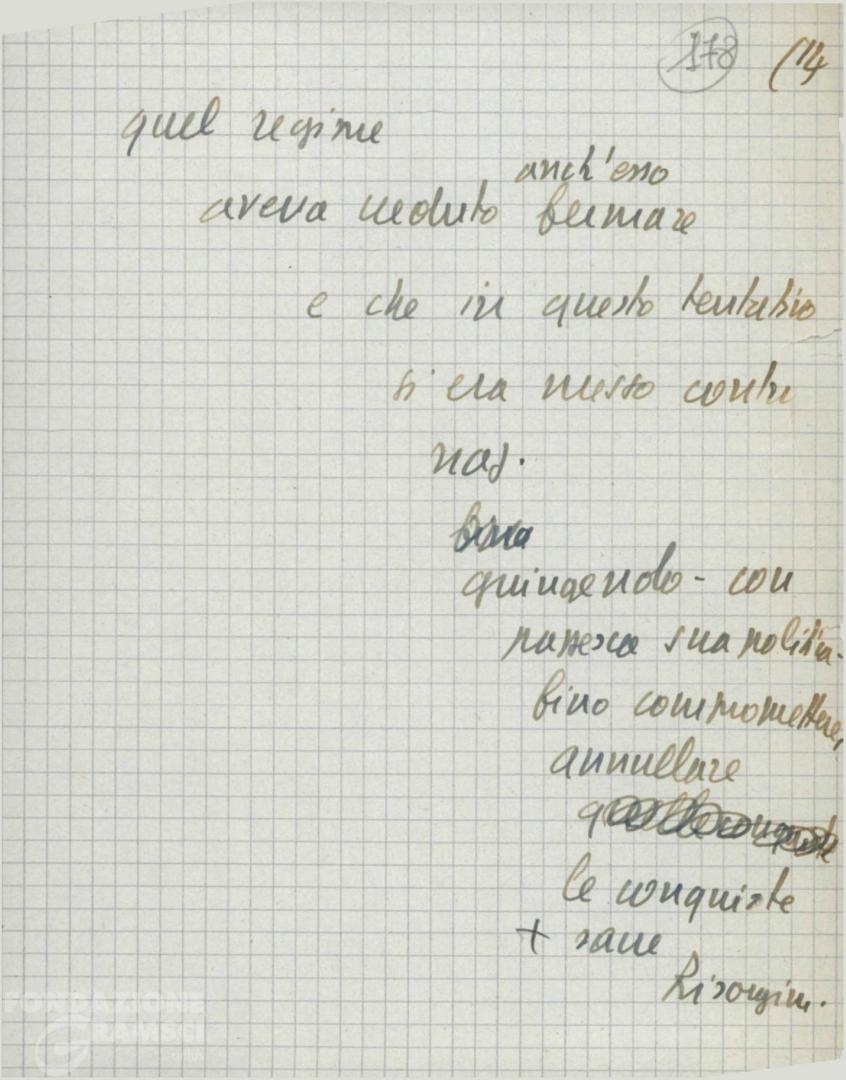 178 (14
quel regime
anch'esso
aveva veduto fermare
e che in questo tentativo
s'era messo contro
naz.
giungendo - con
sua politica -
fino compromettere,
annullare
le conquiste
+ sane
Risorgim.
FONDAZIONE
GRAMSCI